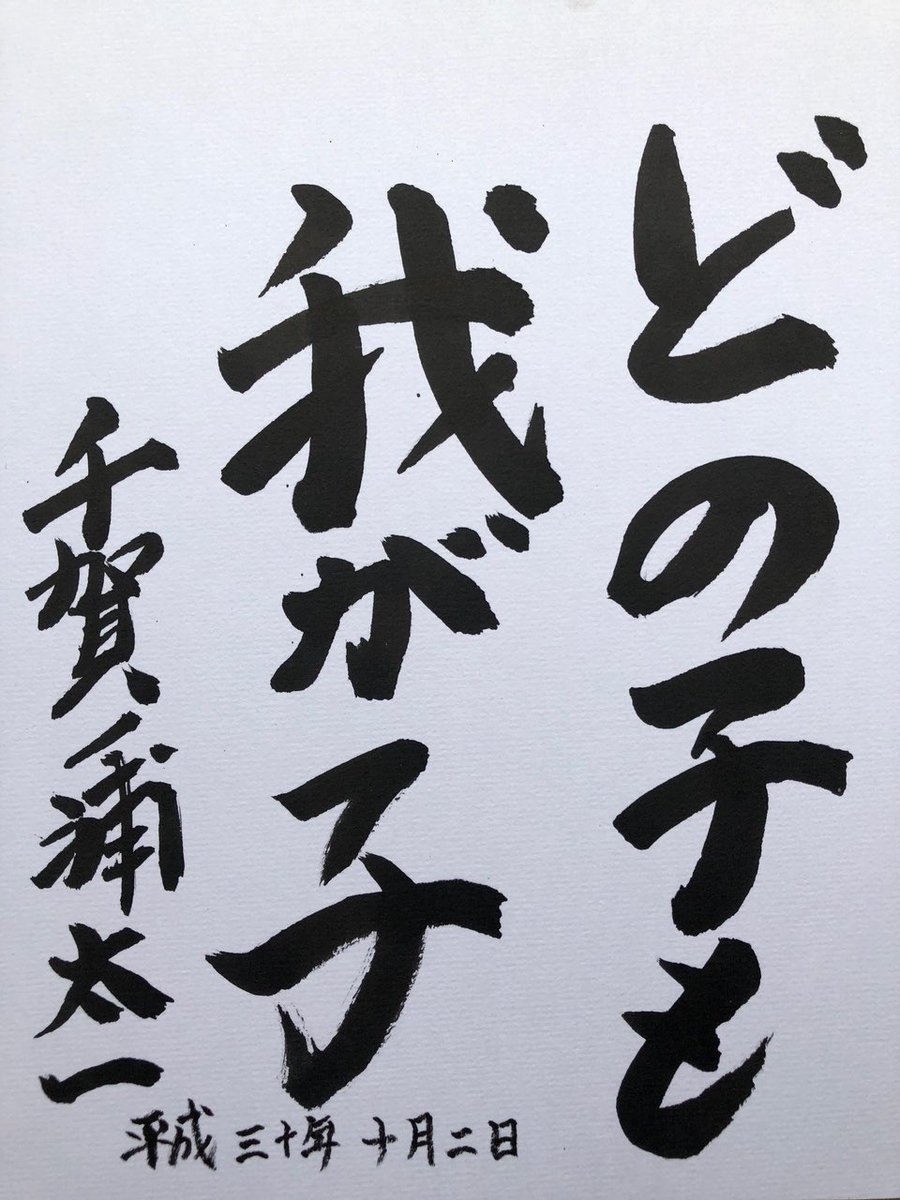 どの子も
我が子
千賀浦太一
平成三十年十月二日